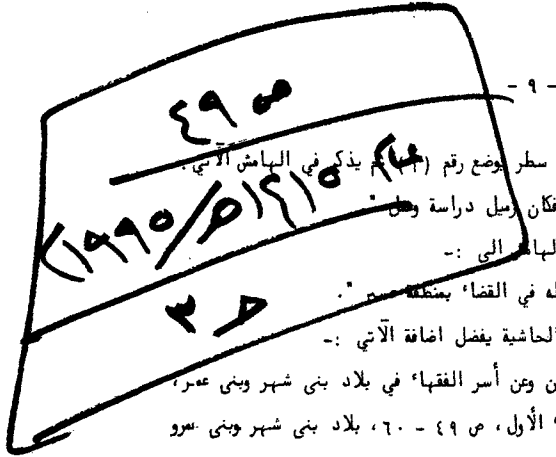 - ٩ -
ص ٤٩
سطر يوضع رقم ( ) ثم يذكر في الهامش الآتي :
فكان زميل دراسة وعمل "
(١٤١٥هـ/١٩٩٥
الهامش الى :-
له في القضاء بمنطقة عسير ".
ح ٣
الحاشية يفضل اضافة الآتي :-
ن وعن أسر الفقهاء في بلاد بنى شهر وبنى عمر،
الأول، ص ٤٩ - ٦٠، بلاد بنى شهر وبنى عمرو